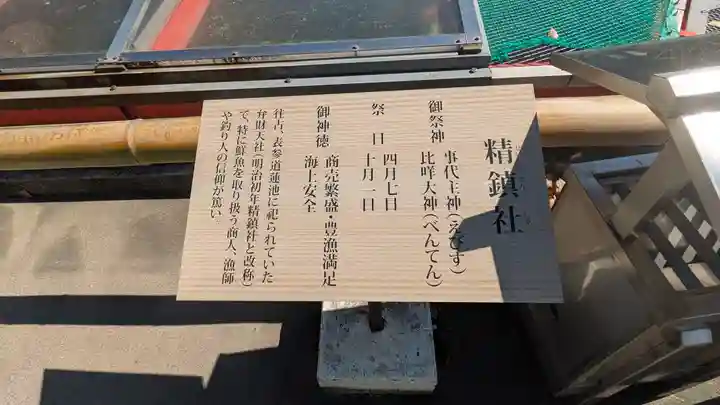 精鎮社
御祭神　事代主神(えびす)
比咩大神(べんてん)
祭　日　四月七日
十月一日
御神徳　商売繁盛・豊漁満足
海上安全
往古、表参道蓮池に祀られていた
弁財天社(明治初年精鎮社と改称)
で、特に鮮魚を取り扱う商人、漁師
や釣り人の信仰が篤い。